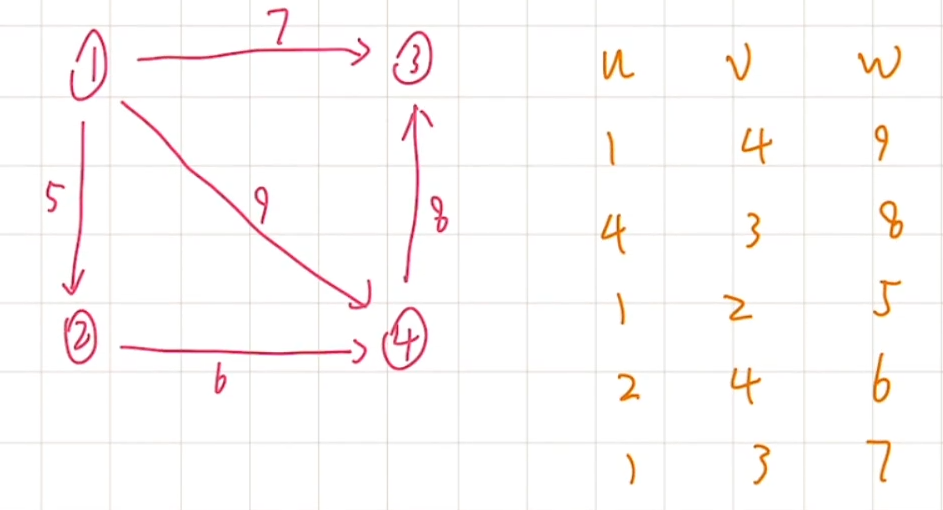 7
① ③
5 9 8
② ④
6
u v w
1 4 9
4 3 8
1 2 5
2 4 6
1 3 7